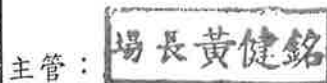 主管：場長黃健銘